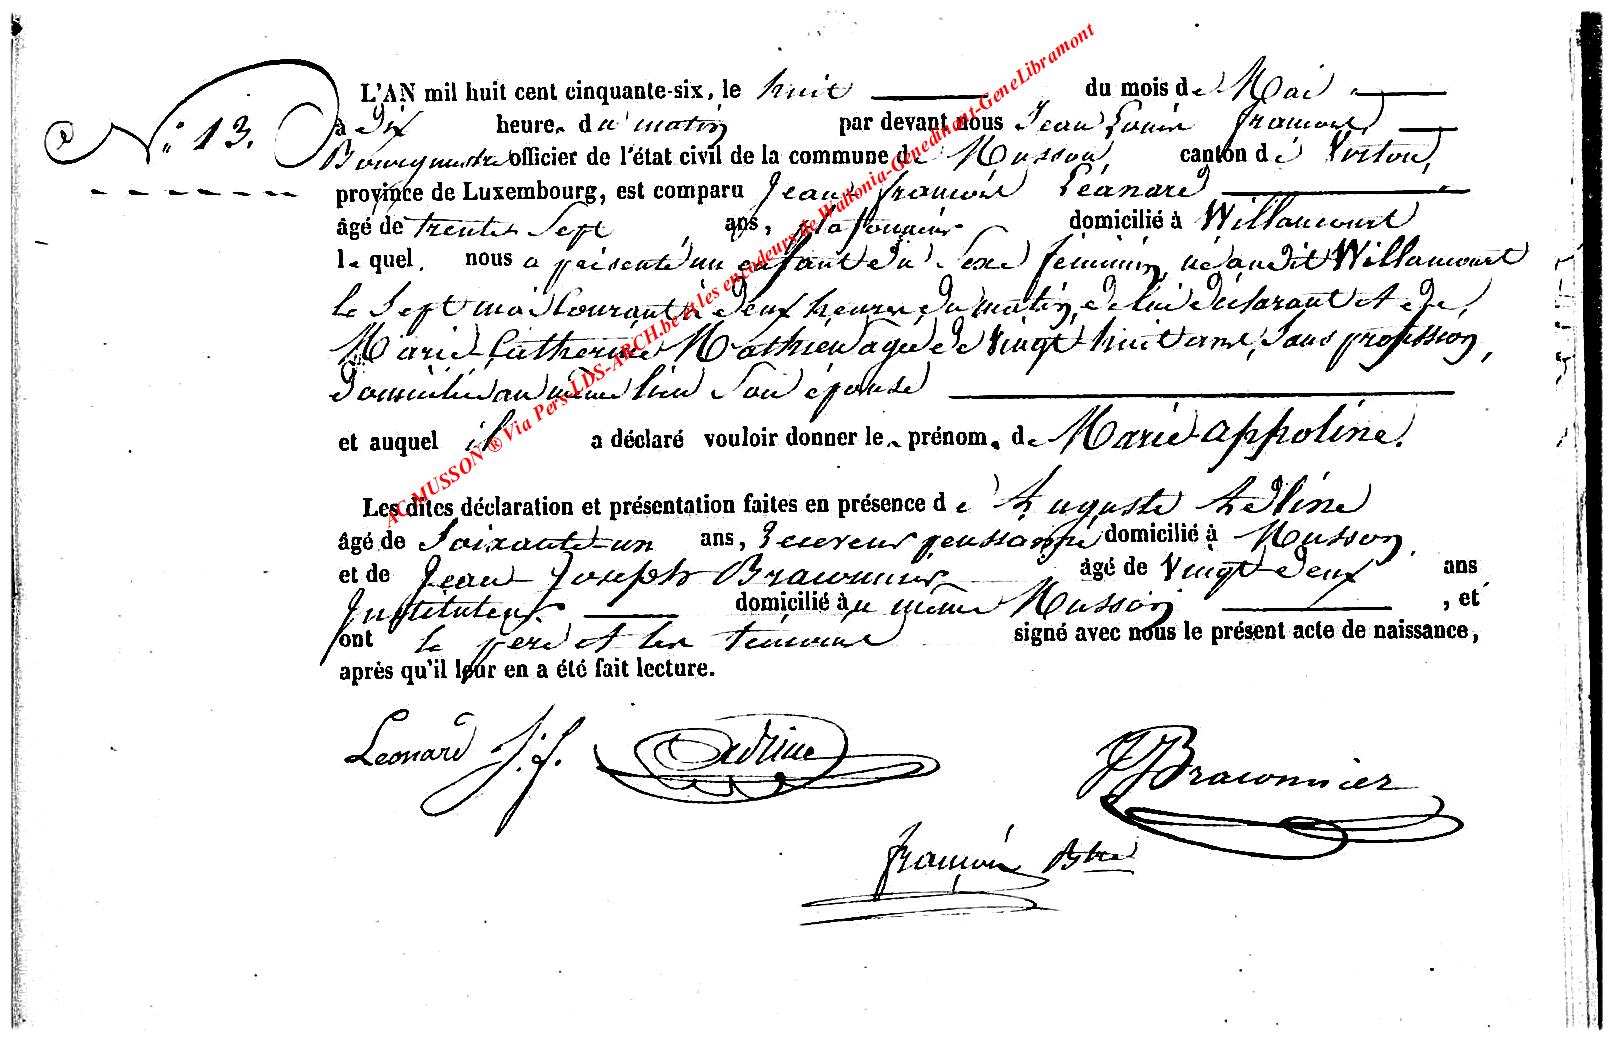 N.° 13.
L'AN mil huit cent cinquante-six, le huit du mois de Mai
à Dix heure. du matin par devant nous Jean Louis françois,
Bourgmestre officier de l'état civil de la commune de Musson, canton de Virton,
province de Luxembourg, est comparu Jean françois Léonard
âgé de trente Sept ans, domicilié à Willancourt
le quel. nous a présenté un enfant du Sexe féminin, né au dit Willancourt
le Sept mai Courant à deux heures du matin, de lui déclarant et de
Marie Catherine Mathieu agée de Vingt huit ans, Sans profession,
Domiciliée au même lieu Son épouse
et auquel il a déclaré vouloir donner le. prénom. de Marie Appoline.
Les dites déclaration et présentation faites en présence de Auguste
âgé de Soixante-un ans, domicilié à Musson,
et de Jean Joseph Braconnier âgé de Vingt deux ans
Instituteur domicilié au même Musson, et
ont le père et les témoins signé avec nous le présent acte de naissance,
après qu'il leur en a été fait lecture.
Léonard J. f.
JJBraconnier
françois Btre
AC MUSSON ® Via Pers-LDS-ARCH.be et les encodeurs de Wallonia-Genedinant-GeneLibramont